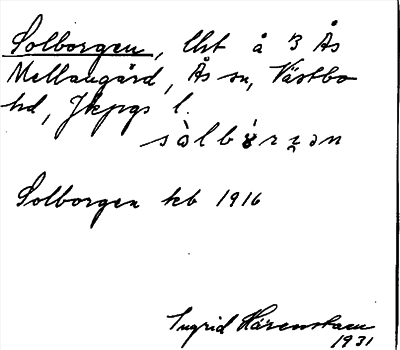 Solborgen, lht å 3 Ås
Mellangård, Ås sn, Västbo
hd, Jkpgs l.
Solborgen kb 1916
Ingrid Härenstam
1931